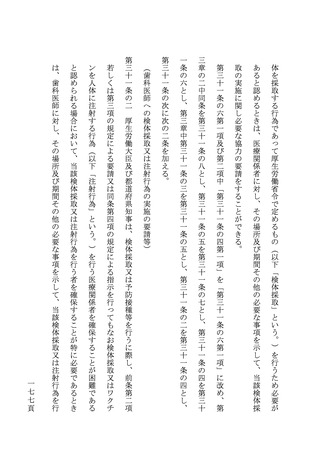 体を採取する行為であって厚生労働省令で定めるもの（以下「検体採取」という。）を行うため必要が
あると認めるときは、医療関係者に対し、その場所及び期間その他の必要な事項を示して、当該検体採
取の実施に関し必要な協力の要請をすることができる。
第三十一条の六第一項及び第二項中「第三十一条の四第一項」を「第三十一条の六第一項」に改め、第
三章の二中同条を第三十一条の八とし、第三十一条の五を第三十一条の七とし、第三十一条の四を第三十
一条の六とし、第三章中第三十一条の三を第三十一条の五とし、第三十一条の二を第三十一条の四とし、
第三十一条の次に次の二条を加える。
（歯科医師への検体採取又は注射行為の実施の要請等）
第三十一条の二　厚生労働大臣及び都道府県知事は、検体採取又は予防接種等を行うに際し、前条第二項
若しくは第三項の規定による要請又は同条第四項の規定による指示を行ってもなお検体採取又はワクチ
ンを人体に注射する行為（以下「注射行為」という。）を行う医療関係者を確保することが困難である
と認められる場合において、当該検体採取又は注射行為を行う者を確保することが特に必要であるとき
は、歯科医師に対し、その場所及び期間その他の必要な事項を示して、当該検体採取又は注射行為を行
一七七頁